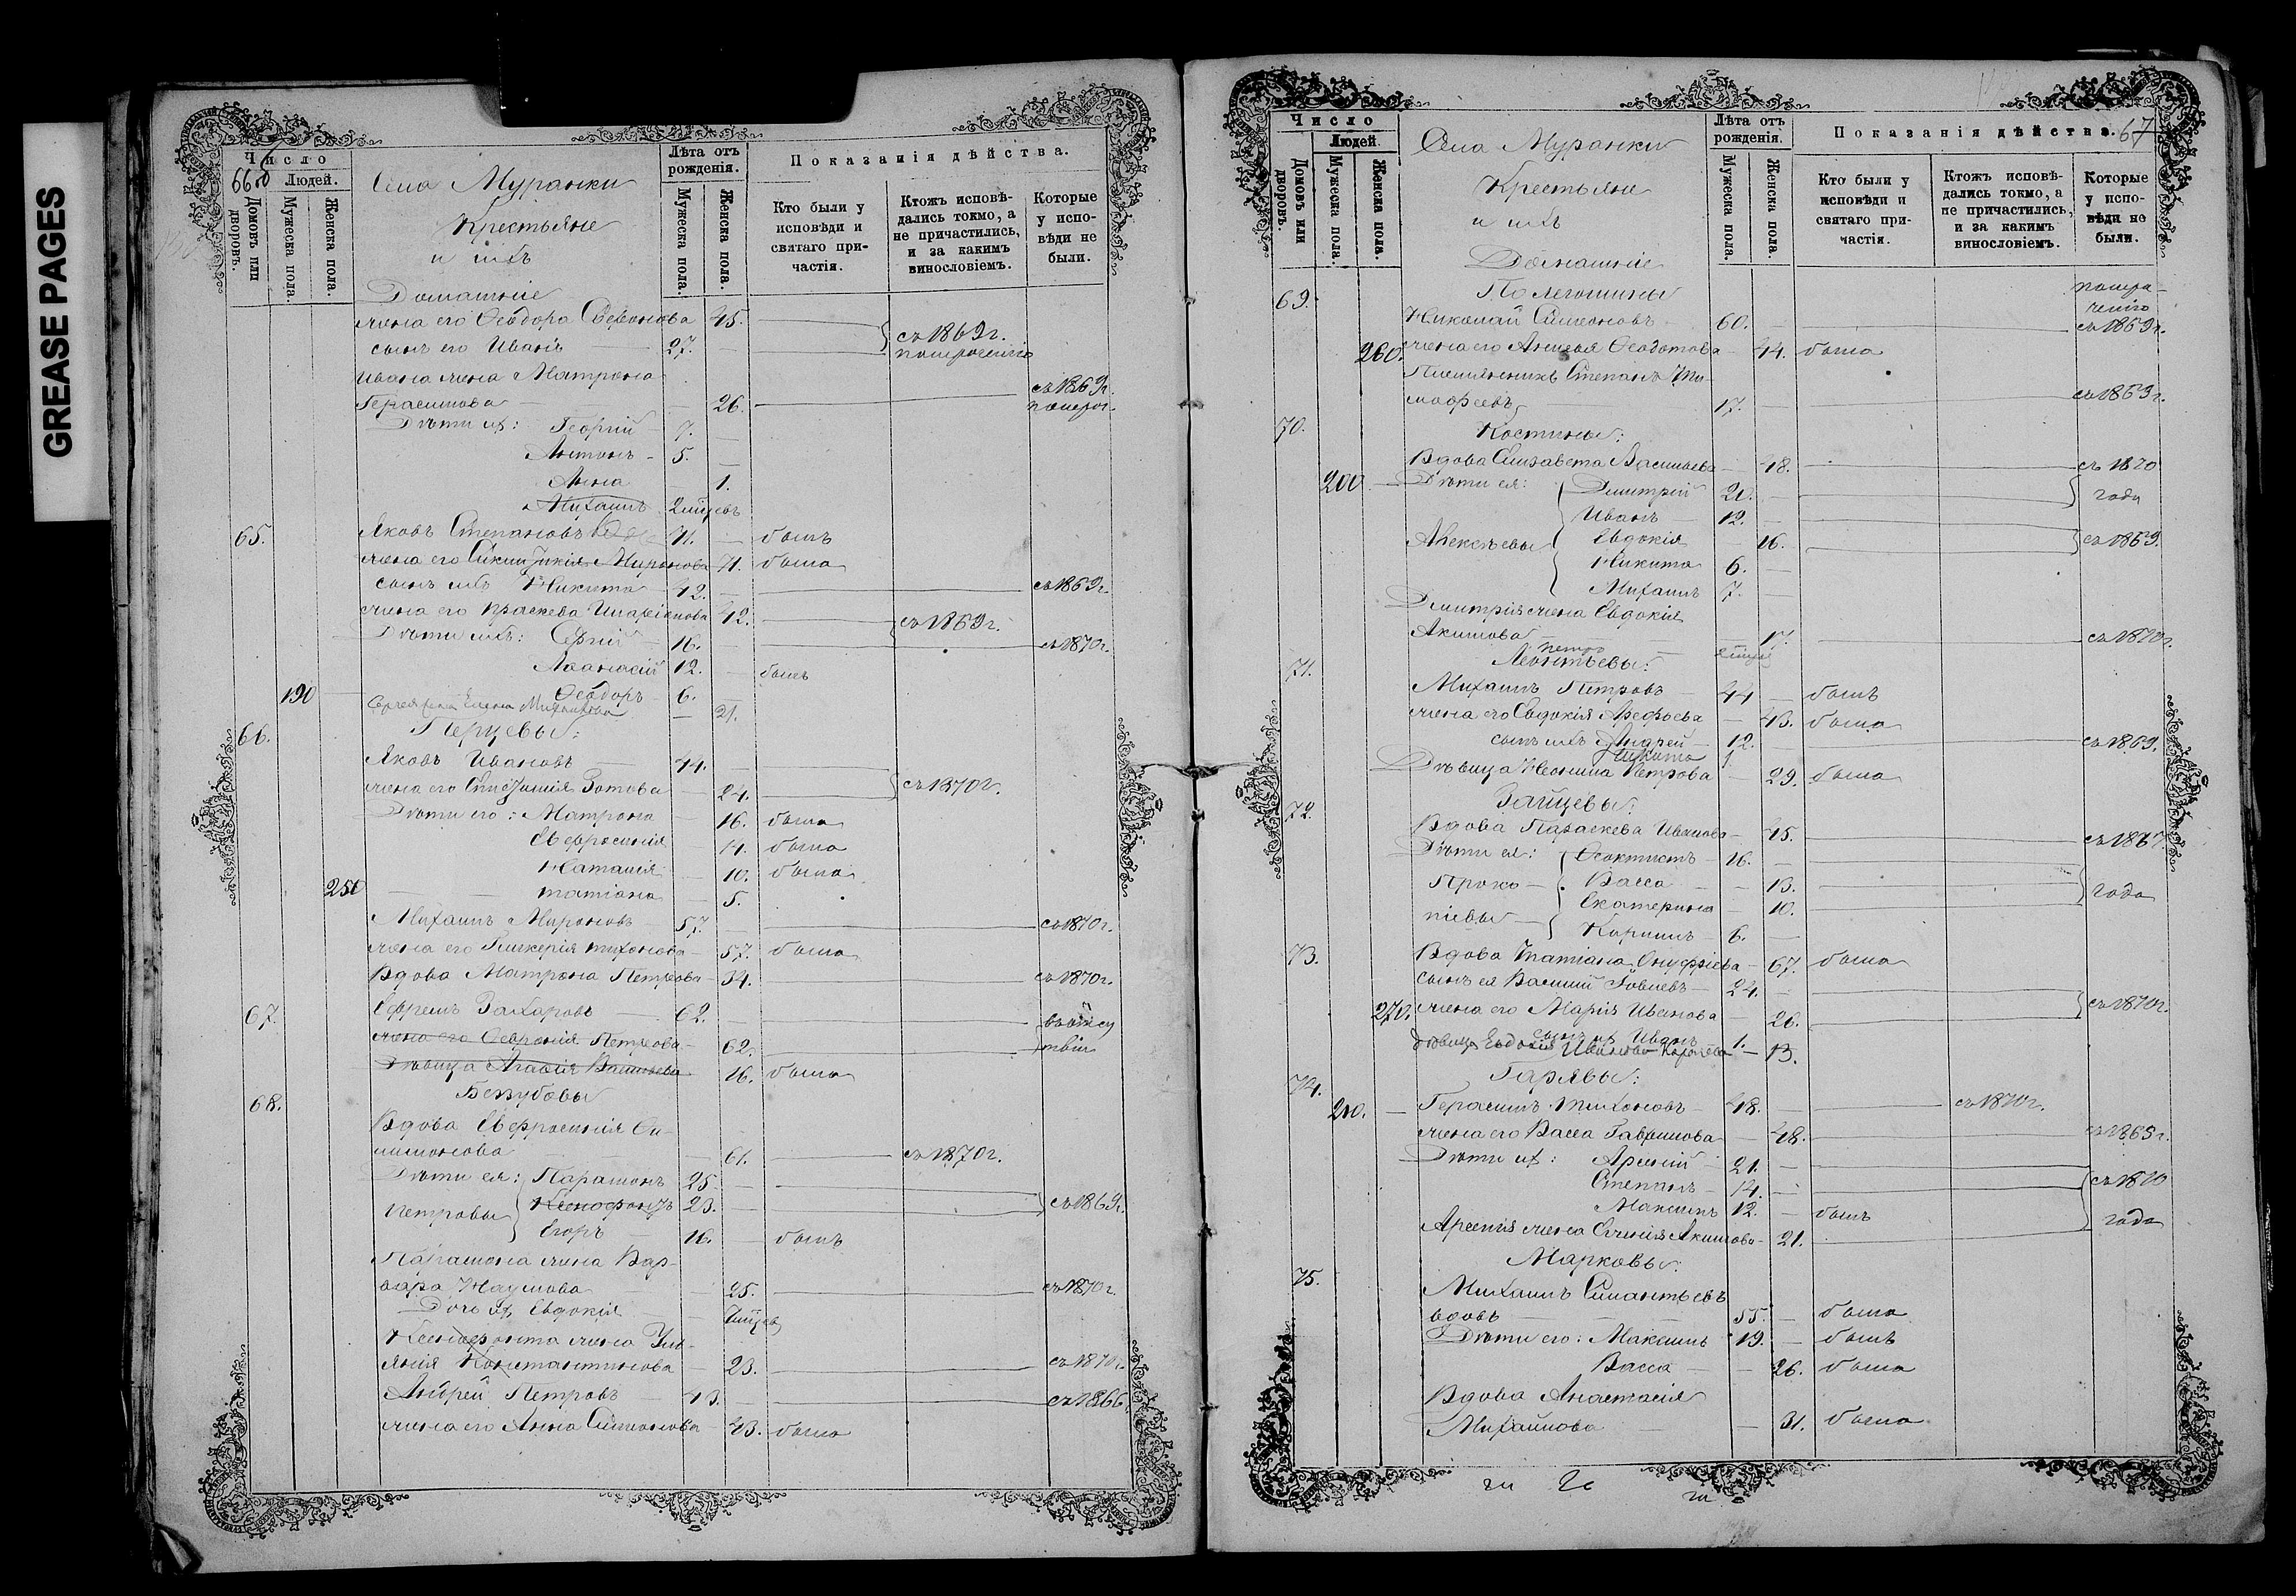 GREASE PAGES
Число
66об
Людей.
Домовъ или дворовъ.
Мужеска пола.
Женска пола.
Села Муранки
Крестьяне
и ихъ
Домашніе
Лѣта отъ рожденія.
Мужеска пола.
Женска пола.
Показанія дѣйства.
Кто были у исповѣди и святаго причастія.
Ктожъ исповѣдались токмо, а не причастились, и за какимъ винословіемъ.
Которые у исповѣди не были.
жена его Ѳеодора 45.
сынъ его Иванъ 27. съ 1869 г.
Ивана жена Матрона
Герасимова 26. съ 1869 г.
Дѣти ихъ: Георгій 7.
Антонъ 5.
Анна 1.
Михаилъ
65. Яковъ Степановъ 71. былъ
жена его Миронова 71. была
сынъ ихъ Никита 42. съ 1869 г.
жена его Праскева 42. съ 1869 г.
Дѣти ихъ: Сергій 16. съ 1870 г.
Аѳанасій 12. былъ
190 Ѳеодоръ 6.
Сергея жена Елена Михайлова 21.
66. Перцевы:
Яковъ Ивановъ 44.
жена его Зотова 24. съ 1870 г.
Дѣти его: Матрона 16. была
Евфросинія 14. была
Наталія 10. была
250 Татіана 5.
Михаилъ Мироновъ 57. съ 1870 г.
жена его Гликерія Тихонова 57. была
Вдова Матрона Петрова 34. съ 1870 г.
67. Ефремъ Захаровъ 62.
жена его Ѳевронія Петрова 62.
Дѣвица Агаѳія Васильева 16. была
68. Беззубовы
Вдова Евфросинія Филимонова 61. съ 1870 г.
Дѣти ея: Парамонъ 25.
Петровы Ксенофонтъ 23. съ 1869 г.
Егоръ 16. былъ
Парамона жена Варвара Наумова 25. съ 1870 г.
Дочь их Евдокія
Ксенофонта жена Ульянія Константинова 23. съ 1870 г.
Андрей Петровъ 43. съ 1866
жена его Анна Симонова 43. была
Число
Людей.
Домовъ или дворовъ.
Мужеска пола.
Женска пола.
Села Муранки
Крестьяне
и ихъ
Домашніе
Лѣта отъ рожденія.
Мужеска пола.
Женска пола.
Показанія дѣйства. 67
Кто были у исповѣди и святаго причастія.
Ктожъ исповѣдались токмо, а не причастились, и за какимъ винословіемъ.
Которые у исповѣди не были.
69.
Николай Симеоновъ 60. съ 1869 г.
260. жена его Ѳеодотова 44. была
Племянникъ Степанъ Тимофеевъ 17. съ 1869 г.
70. Костины:
Вдова Елизавета Васильева 48. съ 1870
200 Дѣти ея: Дмитрій 20. года
Иванъ 12.
Алексѣевы Евдокія 16. съ 1869.
Никита 6.
Михаилъ 7.
Дмитрія жена Евдокія
Акимова 17. съ 1870 г.
71. Леонтьевы:
Михаилъ Петровъ 44 былъ
жена его Евдокія Арефьева 43. была
сынъ ихъ Андрей 12. съ 1869.
Никита 1.
Дѣвица Неонила Петрова 29. была
72. Зайцевы:
Вдова Параскева Иванова 45. съ 1867
Дѣти ея: Ѳеоктистъ 16.
Проко- Васса 13. года
піевы Екатерина 10.
Кирилъ 6.
73. Вдова Татіана Онуфріева 67. была
сынъ ея Василій 24.
270. жена его Марія Иванова 26. съ 1870 г.
сынъ их Иванъ 1.
дѣвица Евдокія Иванова 13.
74. Гарявы:
210. Герасимъ Тихоновъ 48. съ 1870 г.
жена его Васса Гаврилова 48. съ 1869 г.
Дѣти их: Арсеній 21.
Степанъ 14. съ 1870
Максимъ 12. былъ года
Арсенія жена Акимова 21.
75. Марковы:
Михаилъ
вдовъ 55. была
Дѣти его: Максимъ 19. былъ
Васса 26. была
Вдова Анастасія
Михайлова 31. была